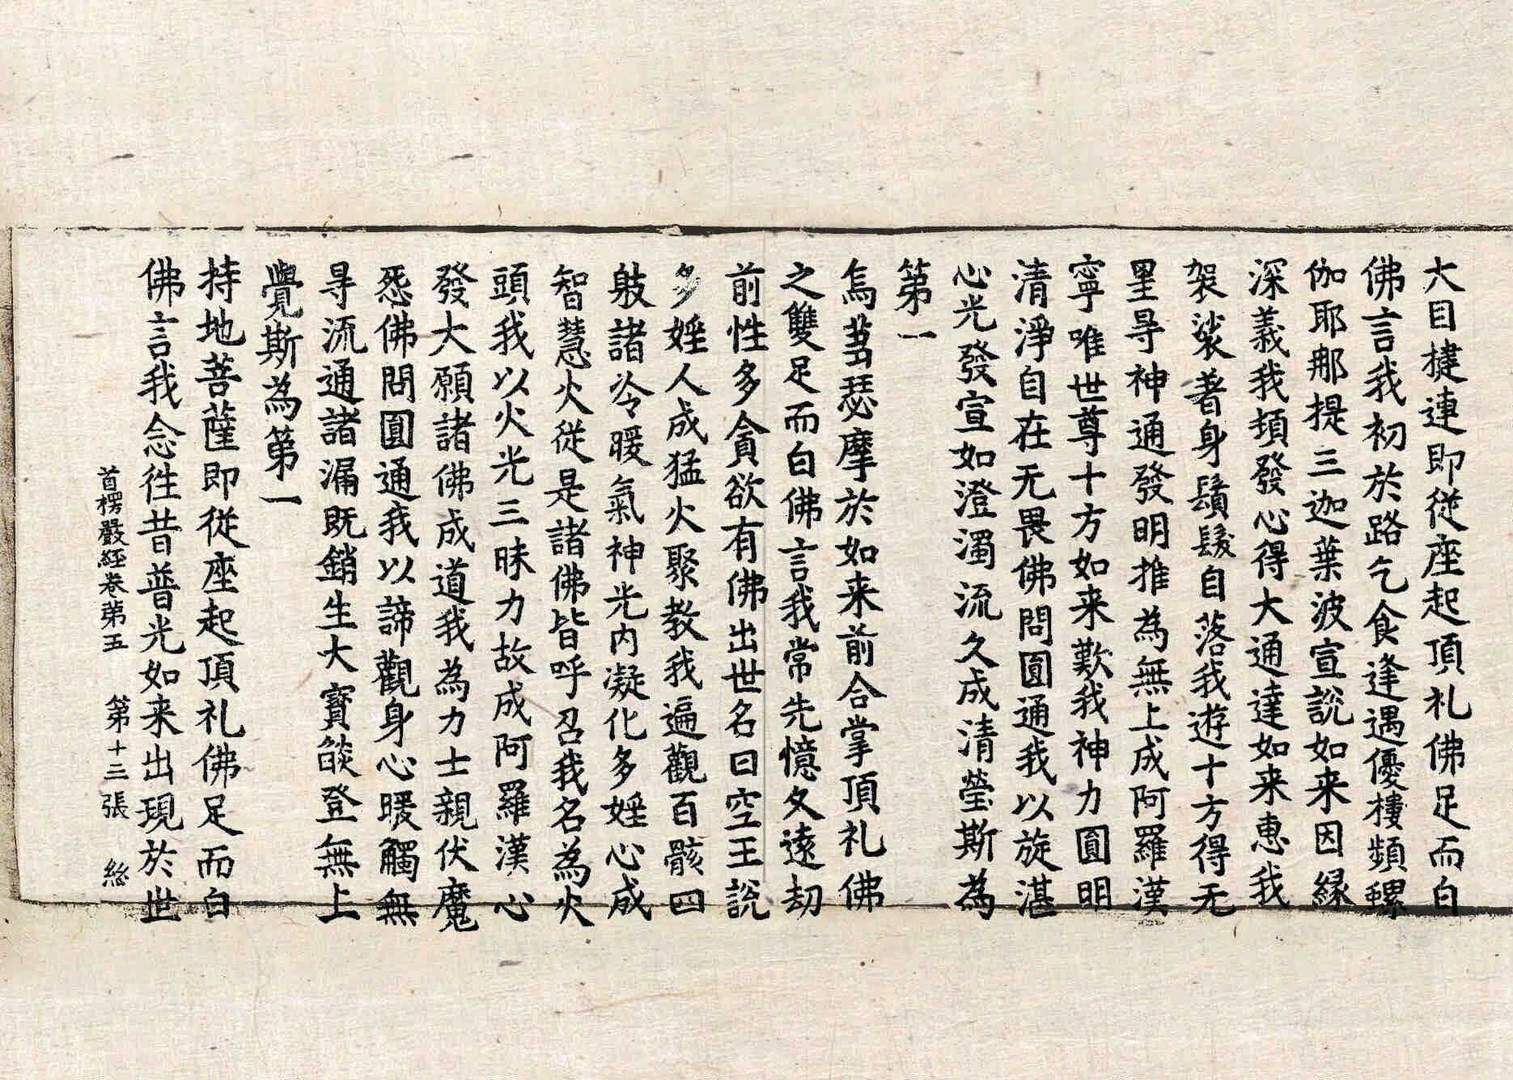 大目揵連即從座起頂礼佛足而白
佛言我初於路乞食逢遇優樓頻螺
伽耶那提三迦葉波宣說如来因緣
深義我頓發心得大通達如来惠我
袈裟著身鬚髮自落我遊十方得无
罣㝵神通發明推為無上成阿羅漢
寧唯世尊十方如来歎我神力圓明
清淨自在无畏佛問圓通我以旋湛
心光發宣如澄濁流久成清瑩斯為
第一
烏芻瑟摩於如来前合掌頂礼佛
之雙足而白佛言我常先憶久遠劫
前性多貪欲有佛出世名曰空王說
多婬人成猛火聚教我遍觀百骸四
躰諸冷暖氣神光內凝化多婬心成
智慧火從是諸佛皆呼召我名為火
頭我以火光三昧力故成阿羅漢心
發大願諸佛成道我為力士親伏魔
怨佛問圓通我以諦觀身心暖觸無
㝵流通諸漏既銷生大寳燄登無上
覺斯為第一
持地菩薩即從座起頂礼佛足而白
佛言我念徃昔普光如来出現於世
首楞嚴經卷第五 第十三張